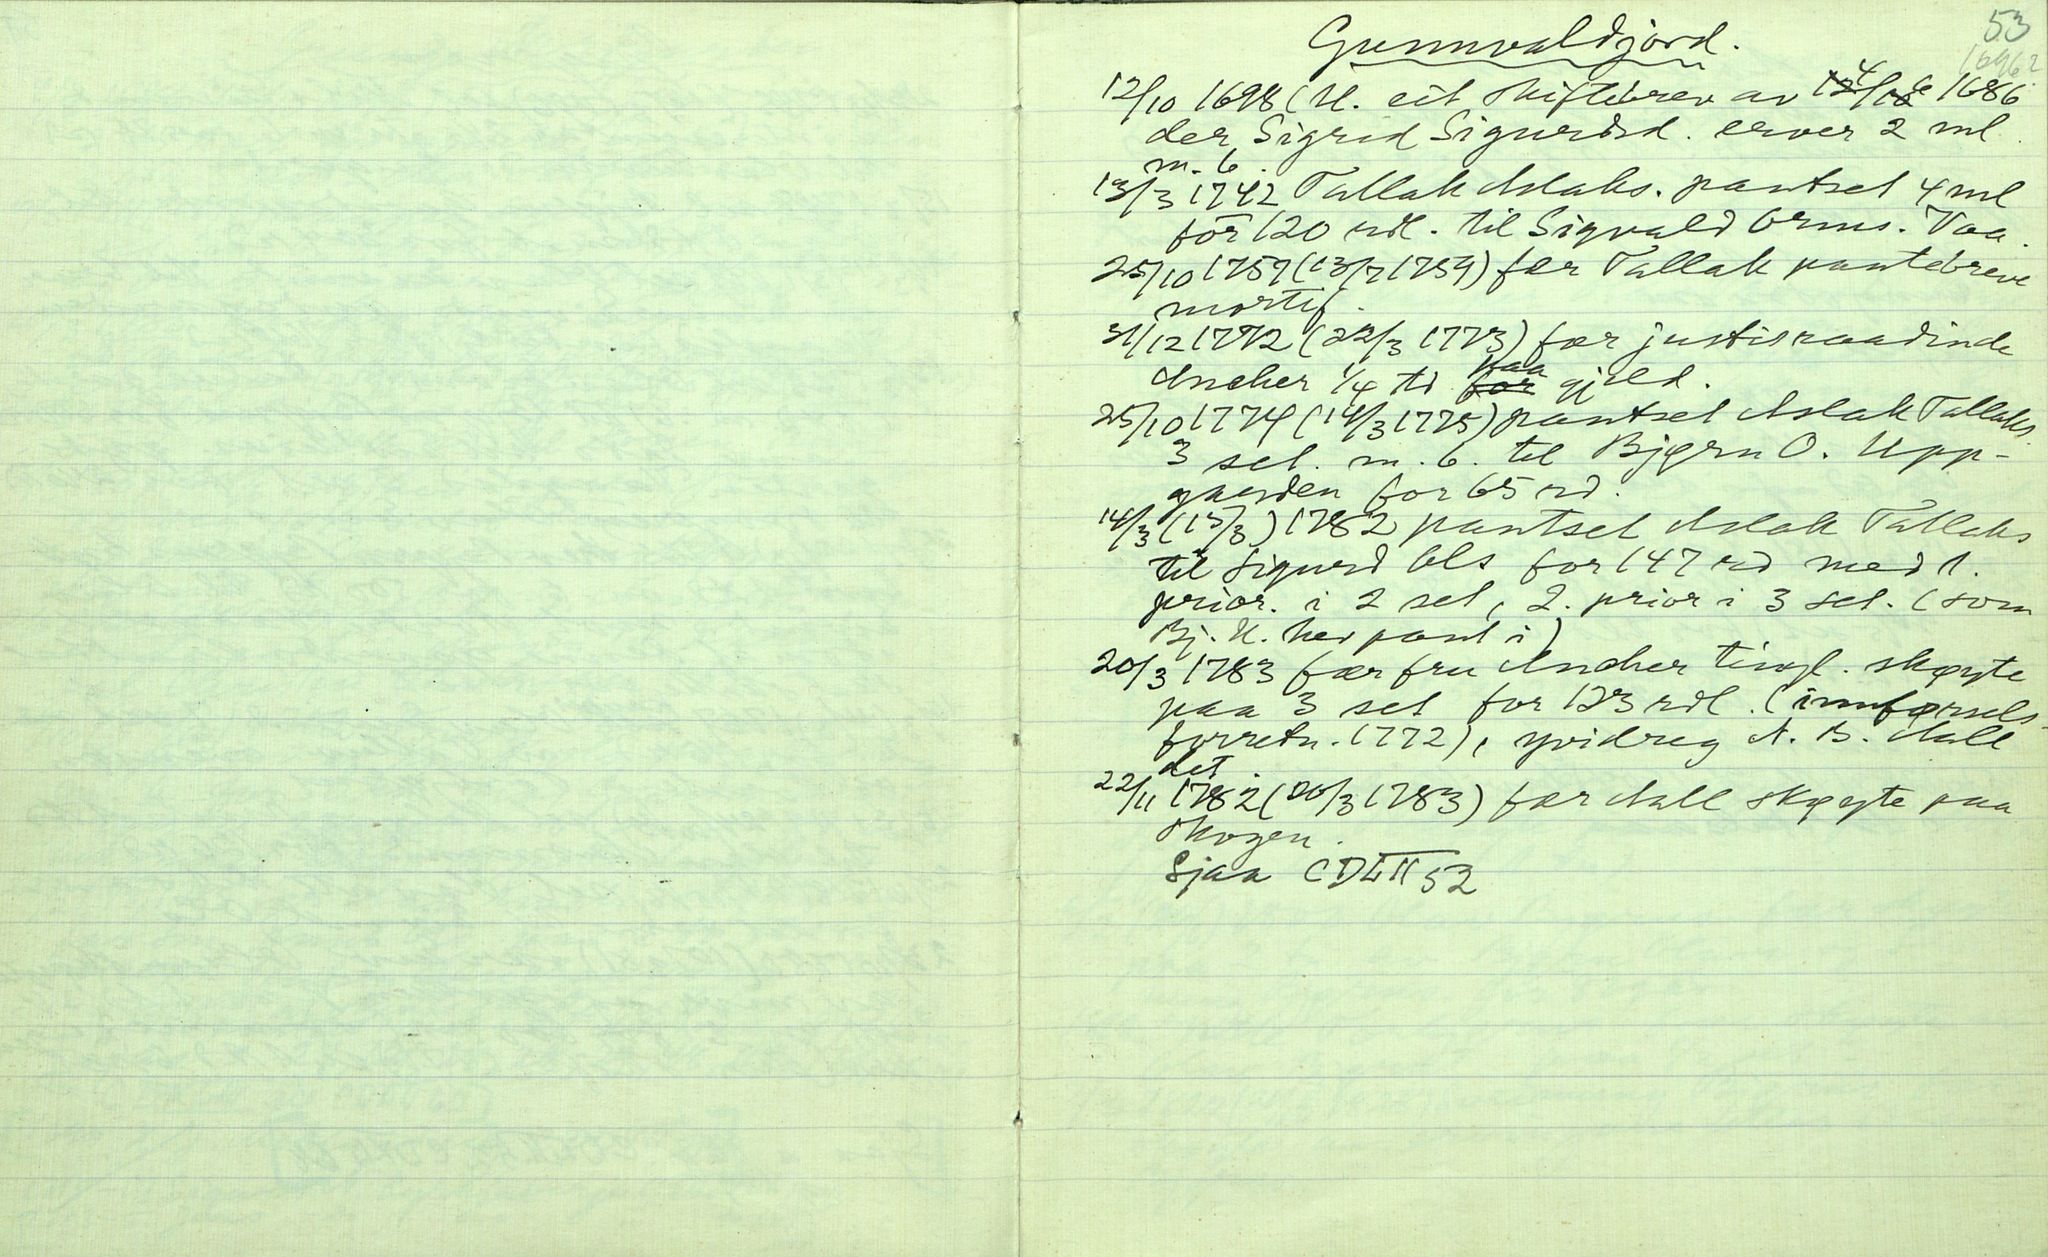 53
Gunnvaldjord.
12/10 1698 (U. eit skiftebrev av 4/6 1686
der Sigrid Sigurdsd. erver 2 ml
m. b.
13/3 1742 Tallak Aslaks. pantset 4 ml
for 120 rdl. til Sigvald Orms. Vaa.
25/10 1757 (13/7 1759) fær Tallak pantebreve
mortif.
31/12 1772 (22/3 1773) fær justisraadinde
Ancher 1/4 td for paa gjeld.
25/10 1774 (14/3 1775) pantset Aslak Tallaks.
3 set. m. b. til Bjørn O. Upp-
gaarden for 65 rd.
14/3 (15/3) 1782 pantset Aslak Tallaks
til Sigurd Ols for 147 rd med 1.
prior. i 2 set, 2. prior i 3 set. (som
Bj. U. hev pant i)
20/3 1783 fær fru Ancher tingl. skøyte
paa 3 set for 123 rdl. (innførsels-
forretn. 1772), yvidreg N. B. Aall
det.
22/11 1782 (20/3 1783) fær Aall skøyte paa
skogen.
Sjaa CDLII 52